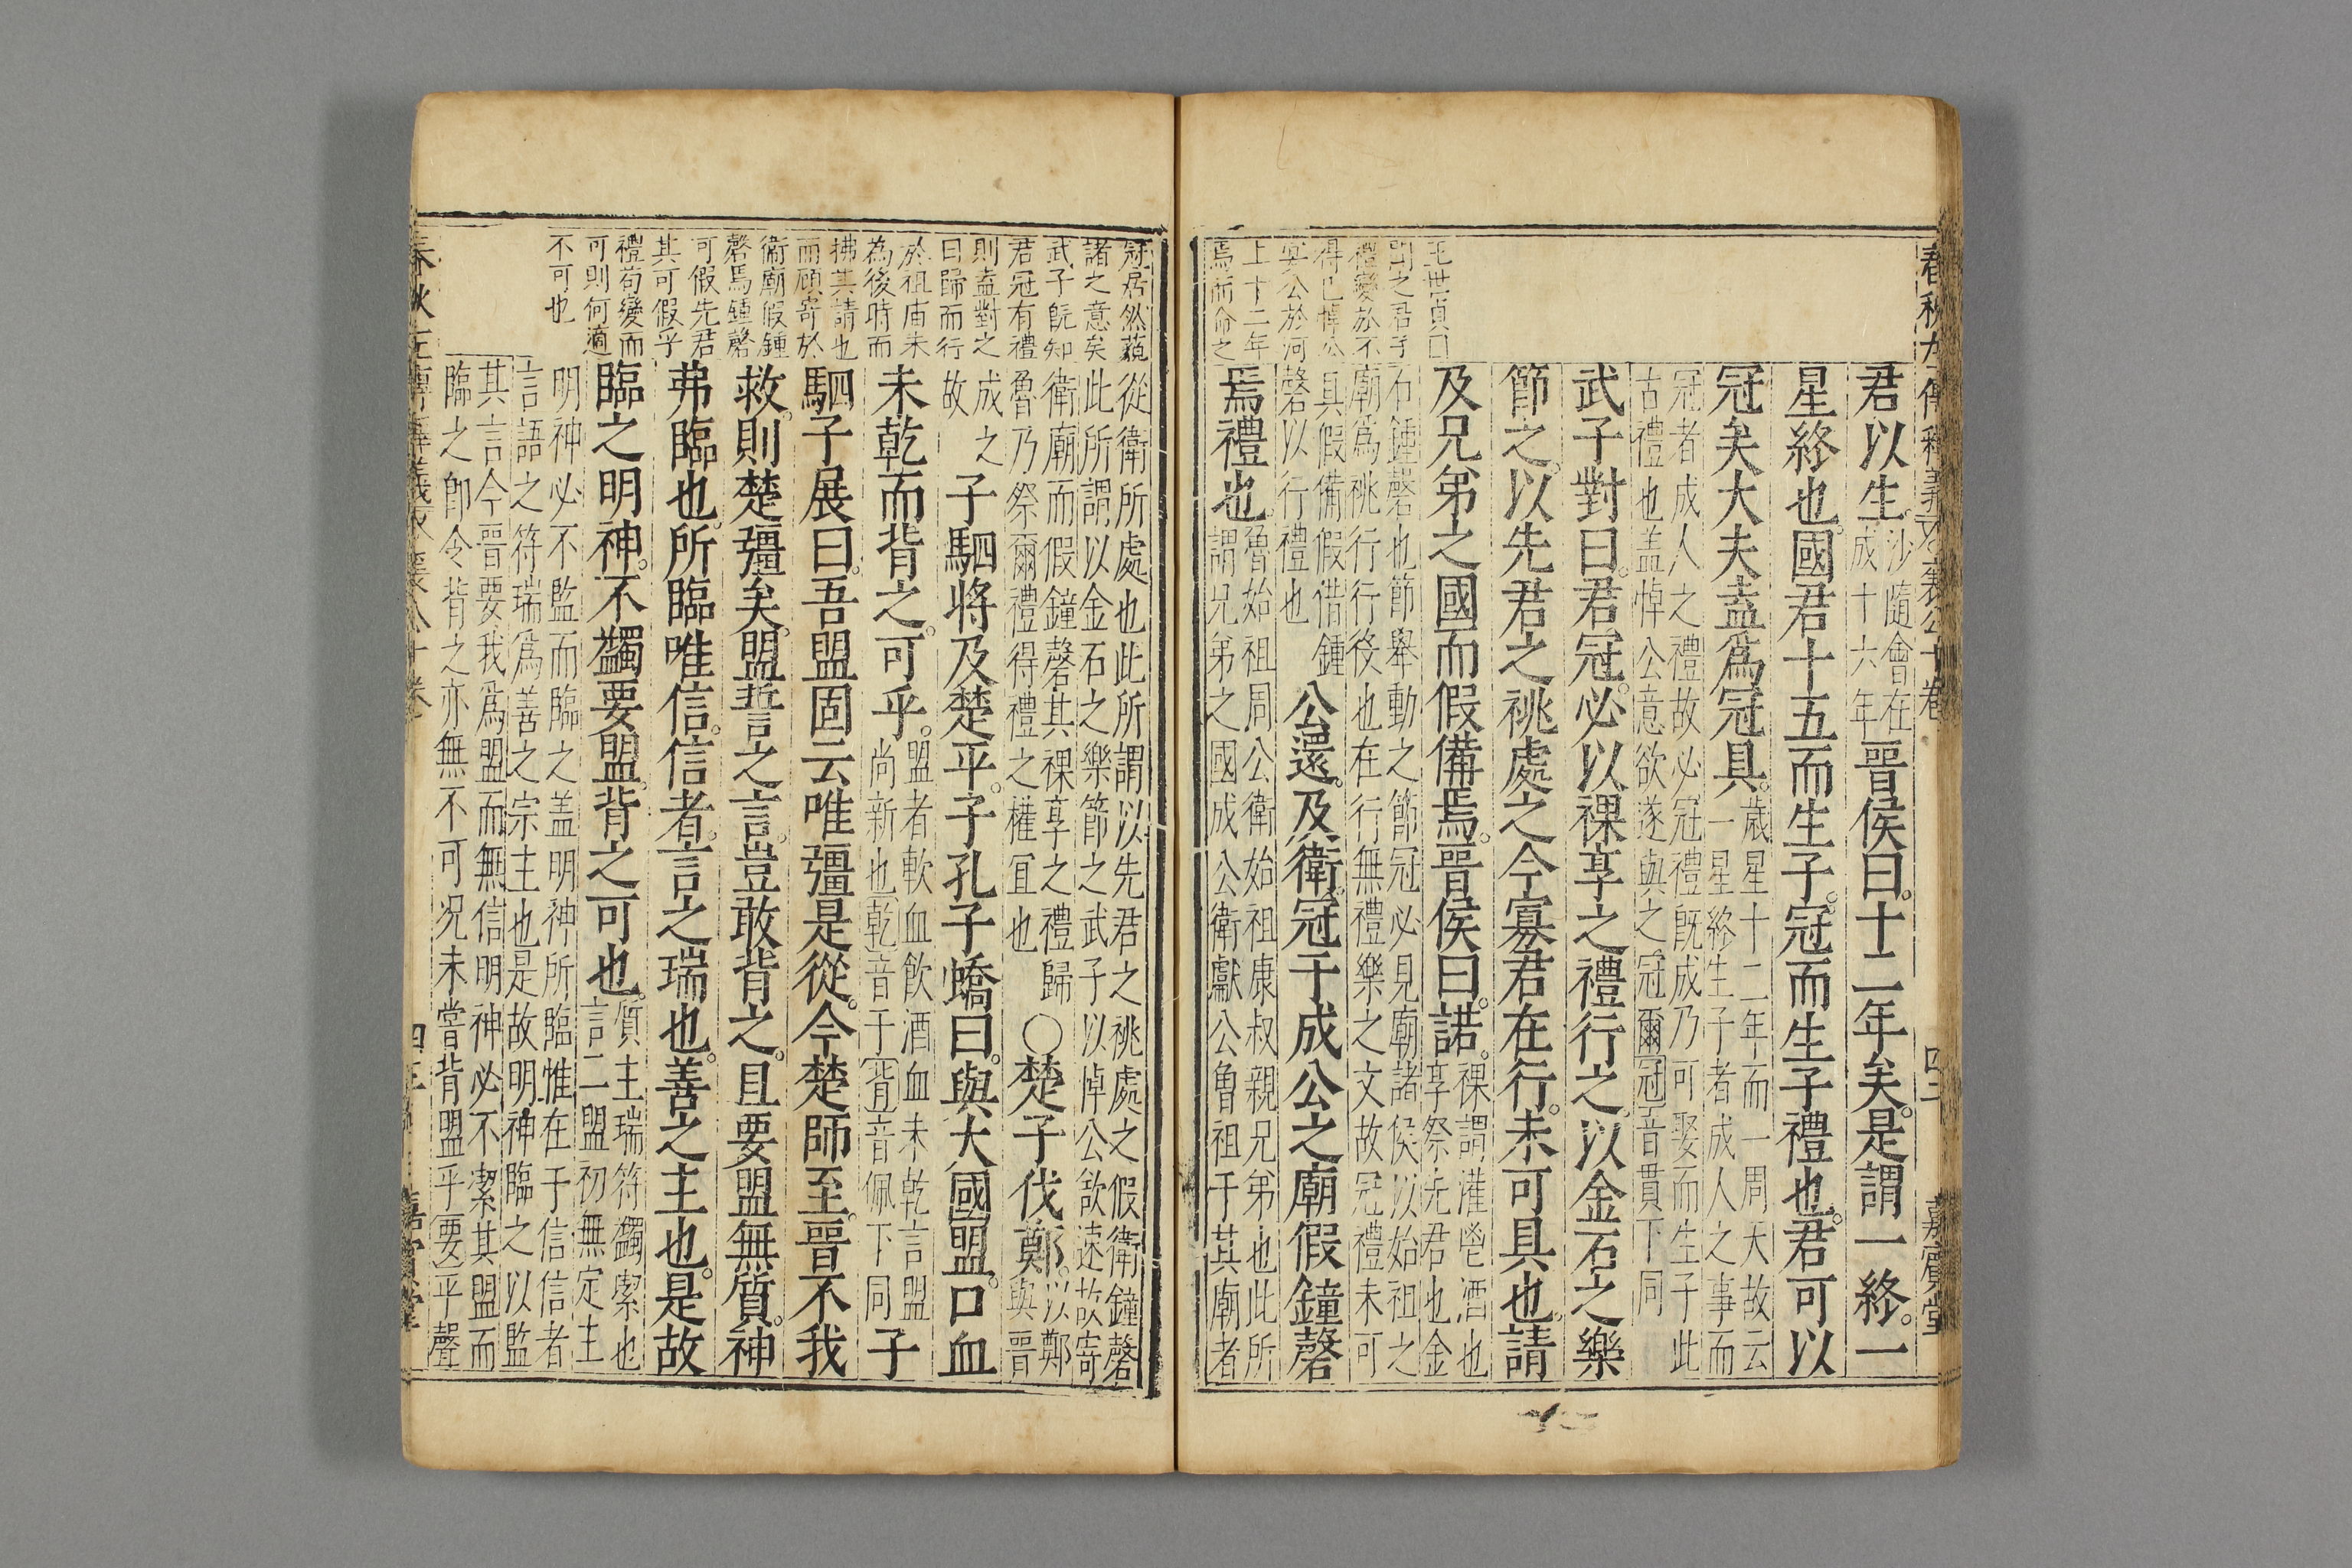 君以生沙隨會在成十六年晉侯曰十二年矣是謂一終一
星終也國君十五而生子冠而生子禮也君可以
冠矣大夫盍爲冠具歲星十二年而一周天故云一星終生子者成人之事而
冠者成人之禮故必冠禮旣成乃可娶而生子此古禮也盖悼公意欲遂與之冠爾冠音貫下同
武子對曰君冠必以祼享之禮行之以金石之樂
節之以先君之祧處之今寡君在行未可具也請
及兄弟之國而假備焉晉侯曰諾祼謂灌鬯酒也享祭先君也金
石鍾磬也節舉動之節冠必見廟諸侯以始祖之廟爲祧行行役也在行無禮樂之文故冠禮未可
具假備假借鍾磬以行禮也公還及衛冠于成公之廟假鐘磬
焉禮也魯始祖周公衛始祖康叔親兄弟也此所謂兄弟之國成公衛獻公曾祖于其廟者
王世貞曰
禮變於不
得已悼公
宴公於河
上十二年
焉而命之
從衛所處也此所謂以先君之祧處之假衛鐘磬
此所謂以金石之樂節之武子以悼公欲速故寄
衛廟而假鐘磬其祼享之禮歸魯乃祭爾禮得禮之權宜也〇楚子伐鄭以鄭與晉
成之故子駟將及楚平子孔子蟜曰與大國盟口血
未乾而背之可乎盟者歃血飲酒血未乾言盟尚新也乾音干背音佩下同子
駟子展曰吾盟固云唯彊是從今楚師至晉不我
救則楚彊矣盟誓之言豈敢背之且要盟無質神
弗臨也所臨唯信信者言之瑞也善之主也是故
臨之明神不蠲要盟背之可也質主瑞符蠲潔也言二盟初無定主
明神必不監而臨之盖明神所臨惟在于信信者言語之符瑞爲善之宗主也是故明神臨之以監
其言今晉要我爲盟而無信明神必不潔其盟而臨之卽令背之亦無不可况未嘗背盟乎要平聲
冠居然藐
諸之意矣
武子旣知
君冠有禮
則盍對之
曰歸而行
於祖庙未
為後時而
拂其請也
而顧寄於
衞廟假鍾
磬焉鍾磬
可假先君
其可假乎
禮苟變而
可則何適
不可也